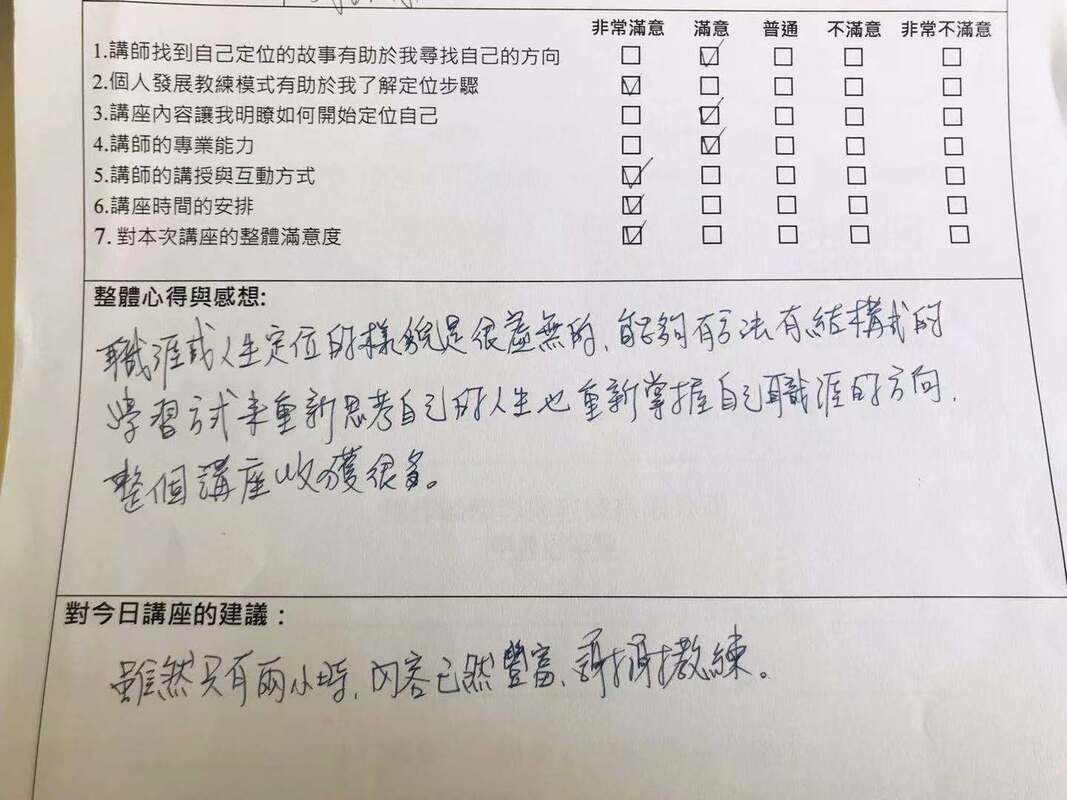 非常滿意 滿意 普通 不滿意 非常不滿意
1.講師找到自己定位的故事有助於我尋找自己的方向 □ ☑ □ □ □
2.個人發展教練模式有助於我了解定位步驟 ☑ □ □ □ □
3.講座內容讓我明瞭如何開始定位自己 □ ☑ □ □ □
4.講師的專業能力 □ ☑ □ □ □
5.講師的講授與互動方式 ☑ □ □ □ □
6.講座時間的安排 ☑ □ □ □ □
7. 對本次講座的整體滿意度 ☑ □ □ □ □
整體心得與感想:
職涯或人生定位的樣貌是很虛無的，能夠有方法有結構式的
學習方式來重新思考自己的人生也重新掌握自己職涯的方向，
整個講座收穫很多。
對今日講座的建議：
雖然只有兩小時，內容已然豐富，謝謝教練。